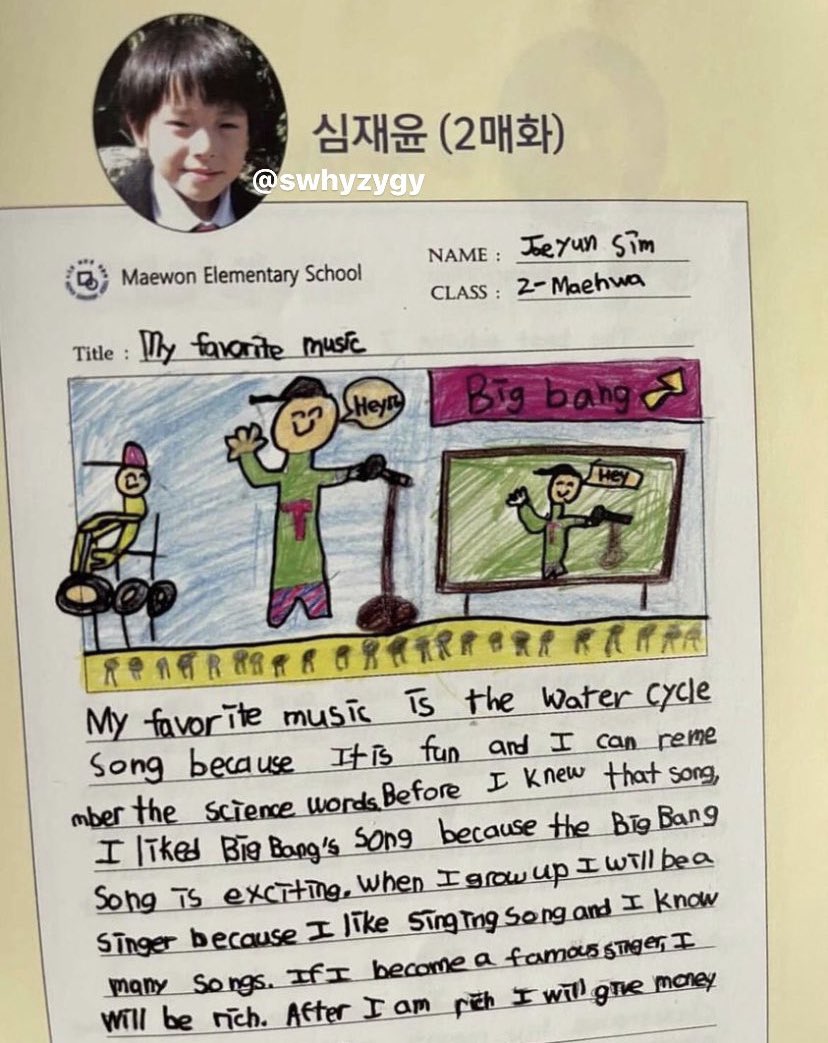 심재윤 (2매화)
@swhyzygy
Maewon Elementary School
NAME : Jaeyun Sim
CLASS : 2-Maehwa
Title : My favorite music
Hey
Big bang
Hey
T
My favorite music is the water cycle
song because It is fun and I can reme
mber the science words. Before I knew that song,
I liked Big Bang's song because the Big Bang
song is exciting. When I grow up I will be a
singer because I like singing song and I know
many songs. If I become a famous singer, I
will be rich. After I am rich I will give money